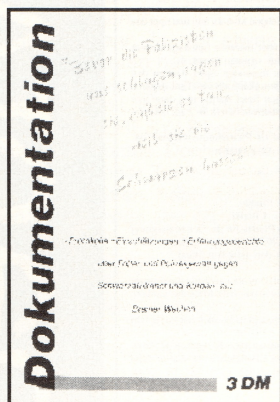 Dokumentation
"Bevor die Polizisten
uns schlagen, sagen
sie, daß sie es tun,
weil sie die
Schwarzen hassen"
-Protokolle -Einschätzungen -Erfahrungsberichte
über Folter und Polizeigewalt gegen
Schwarzafrikaner und Kurden auf
Bremer Wachen
3 DM